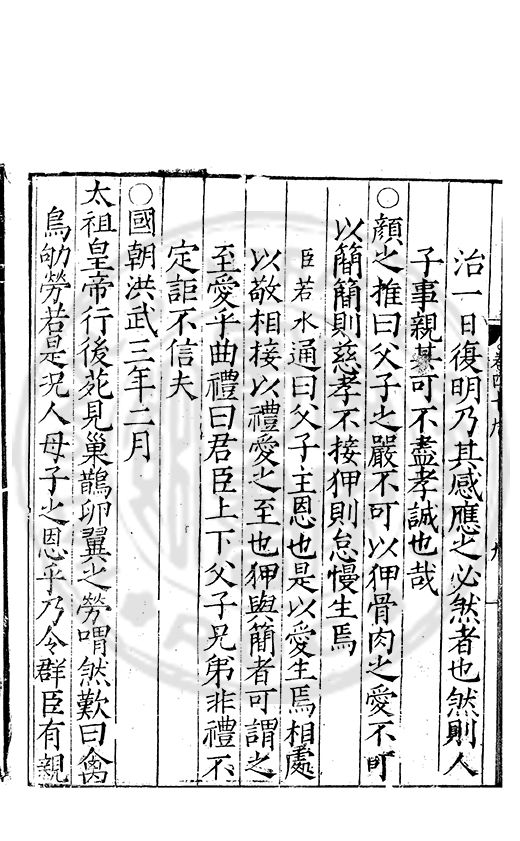 治一日復明乃其感應之必然者也然則人
子事親其可不盡孝誠也哉
○顏之推曰父子之嚴不可以狎骨肉之愛不可
以簡簡則慈孝不接狎則怠慢生焉
臣若水通曰父子主恩也是以愛生焉相處
以敬相接以禮愛之至也狎與簡者可謂之
至愛乎曲禮曰君臣上下父子兄弟非禮不
定詎不信夫
○國朝洪武三年二月
太祖皇帝行後苑見巢鵲卵翼之勞喟然歎曰禽
鳥劬勞若是況人母子之恩乎乃令群臣有親
卷四十九
九